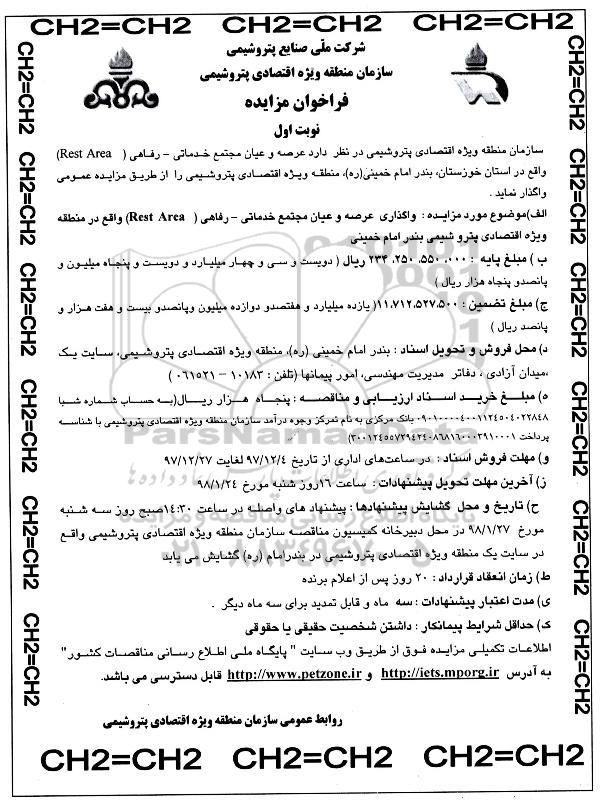 CH2=CH2 CH2=CH2 CH2=CH2
شرکت ملّی صنایع پتروشیمی
سازمان منطقه ویژه اقتصادی پتروشیمی
فراخوان مزایده
نوبت اول
سازمان منطقه ویژه اقتصادی پتروشیمی در نظر دارد عرصه و عیان مجتمع خدماتی – رفاهی ( Rest Area)
واقع در استان خوزستان، بندر امام خمینی(ره)، منطقه ویژه اقتصادی پتروشیمی را از طریق مزایده عمومی
واگذار نماید .
الف)موضوع مورد مزایده : واگذاری عرصه و عیان مجتمع خدماتی – رفاهی ( Rest Area) واقع در منطقه
ویژه اقتصادی پترو شیمی بندر امام خمینی
ب ) مبلغ پایه : ۲۳۴،۲۵۰،۵۵۰،۰۰۰ ریال ( دویست و سی و چهار میلیارد و دویست و پنجاه میلیون و
پانصدو پنجاه هزار ریال )
ج) مبلغ تضمین : ۱۱،۷۱۲،۵۲۷،۵۰۰( یازده میلیارد و هفتصدو دوازده میلیون وپانصدو بیست و هفت هزار و
پانصد ریال )
د) محل فروش و تحویل اسناد : بندر امام خمینی (ره)، منطقه ویژه اقتصادی پتروشیمی، سایت یک
،میدان آزادی ، دفاتر مدیریت مهندسی، امور پیمانها (تلفن : ۱۰۱۸۳ – ۰۶۱۵۲۱ )
ه) مبلغ خرید اسناد ارزیابی و مناقصه : پنجاه هزار ریال(به حساب شماره شبا
بانک مرکزی به نام تمرکز وجوه درآمد سازمان منطقه ویژه اقتصادی پتروشیمی با شناسه
پرداخت
و) مهلت فروش اسناد : در ساعت‌های اداری از تاریخ ۹۷/۱۲/۴ لغایت ۹۷/۱۲/۲۷
ز) آخرین مهلت تحویل پیشنهادات : ساعت ۱۶روز شنبه مورخ ۹۸/۱/۲۴
ح) تاریخ و محل گشایش پیشنهادها : پیشنهاد های واصله در ساعت ۱۴:۳۰صبح روز سه شنبه
مورخ ۹۸/۱/۲۷ در محل دبیرخانه کمیسیون مناقصه سازمان منطقه ویژه اقتصادی پتروشیمی واقع
در سایت یک منطقه ویژه اقتصادی پتروشیمی در بندرامام (ره) گشایش می یابد
ط) زمان انعقاد قرارداد : ۲۰ روز پس از اعلام برنده
ی) مدت اعتبار پیشنهادات : سه ماه و قابل تمدید برای سه ماه دیگر .
ک) حداقل شرایط پیمانکار : داشتن شخصیت حقیقی یا حقوقی
اطلاعات تکمیلی مزایده فوق از طریق وب سایت " پایگاه ملی اطلاع رسانی مناقصات کشور"
به آدرس http://iets.mporg.ir و http://www.petzone.ir قابل دسترسی می باشد.
روابط عمومی سازمان منطقه ویژه اقتصادی پتروشیمی
CH2=CH2 CH2=CH2 CH2=CH2
CH2=CH2
CH2=CH2
CH2=CH2
CH2=CH2
CH2=CH2
CH2=CH2
CH2=CH2
CH2=CH2
CH2=CH2
CH2=CH2
CH2=CH2
CH2=CH2
ParsNamadData